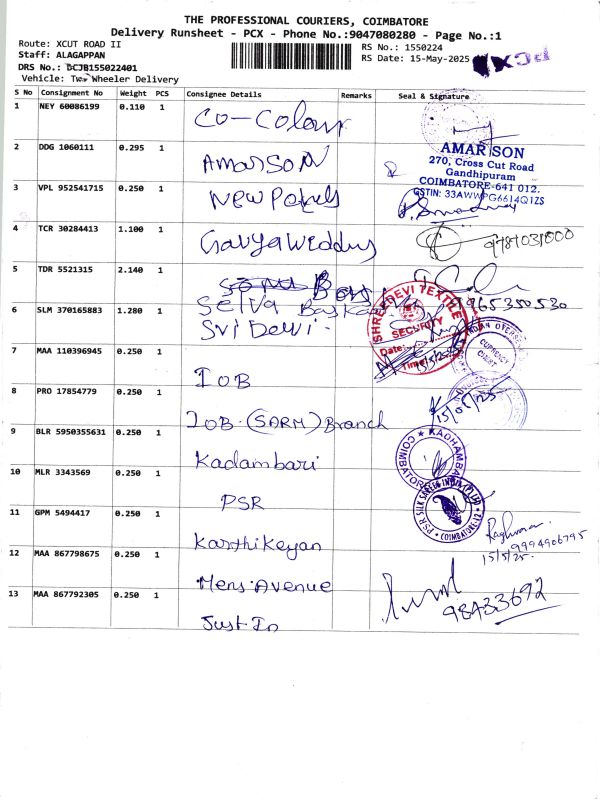 THE PROFESSIONAL COURIERS, COIMBATORE
Delivery Runsheet - PCX - Phone No.:9047080280 - Page No.:1
Route: XCUT ROAD II
RS No.: 1550224
Staff: ALAGAPPAN
RS Date: 15-May-2025
PCX
DRS No.: DCJB155022401
Vehicle: Two Wheeler Delivery
S No Consignment No Weight PCS Consignee Details Remarks Seal & Signature
1 NEY 60086199 0.110 1 Co-Colour
2 DDG 1060111 0.295 1 Amarson
AMARSON
270, Cross Cut Road
Gandhipuram
COIMBATORE-641 012.
GSTIN: 33AWWPG6614Q1ZS
3 VPL 952541715 0.250 1 New
4 TCR 30284413 1.100 1
5 TDR 5521315 2.140 1
Selva
9965350530
6 SLM 370165883 1.280 1 Sri Devi
SHREEDEVI TEXTILE
SECURITY
Date:
Time:
15/5/25
7 MAA 110396945 0.250 1 IOB
CURRENCY
CHEST
8 PRO 17854779 0.250 1 IOB (SARM) Branch
15/05/25
9 BLR 5950355631 0.250 1 Kadambari
KADHAMBARI
COIMBATORE
10 MLR 3343569 0.250 1 PSR
PSR SILK SAREES INDIA (P) LTD
COIMBATORE-12
11 GPM 5494417 0.250 1 Karthikeyan
Raghuraman
9994906795
15/5/25
12 MAA 867798675 0.250 1 Mens Avenue
13 MAA 867792305 0.250 1 Just In
98433692